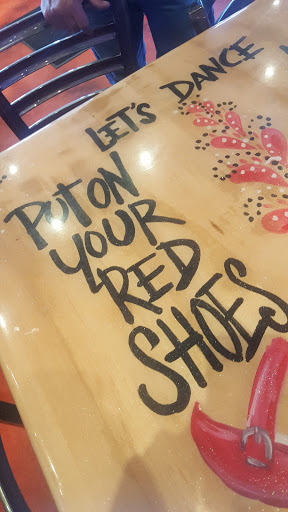 LET'S DANCE
PUT ON
YOUR
RED
SHOES